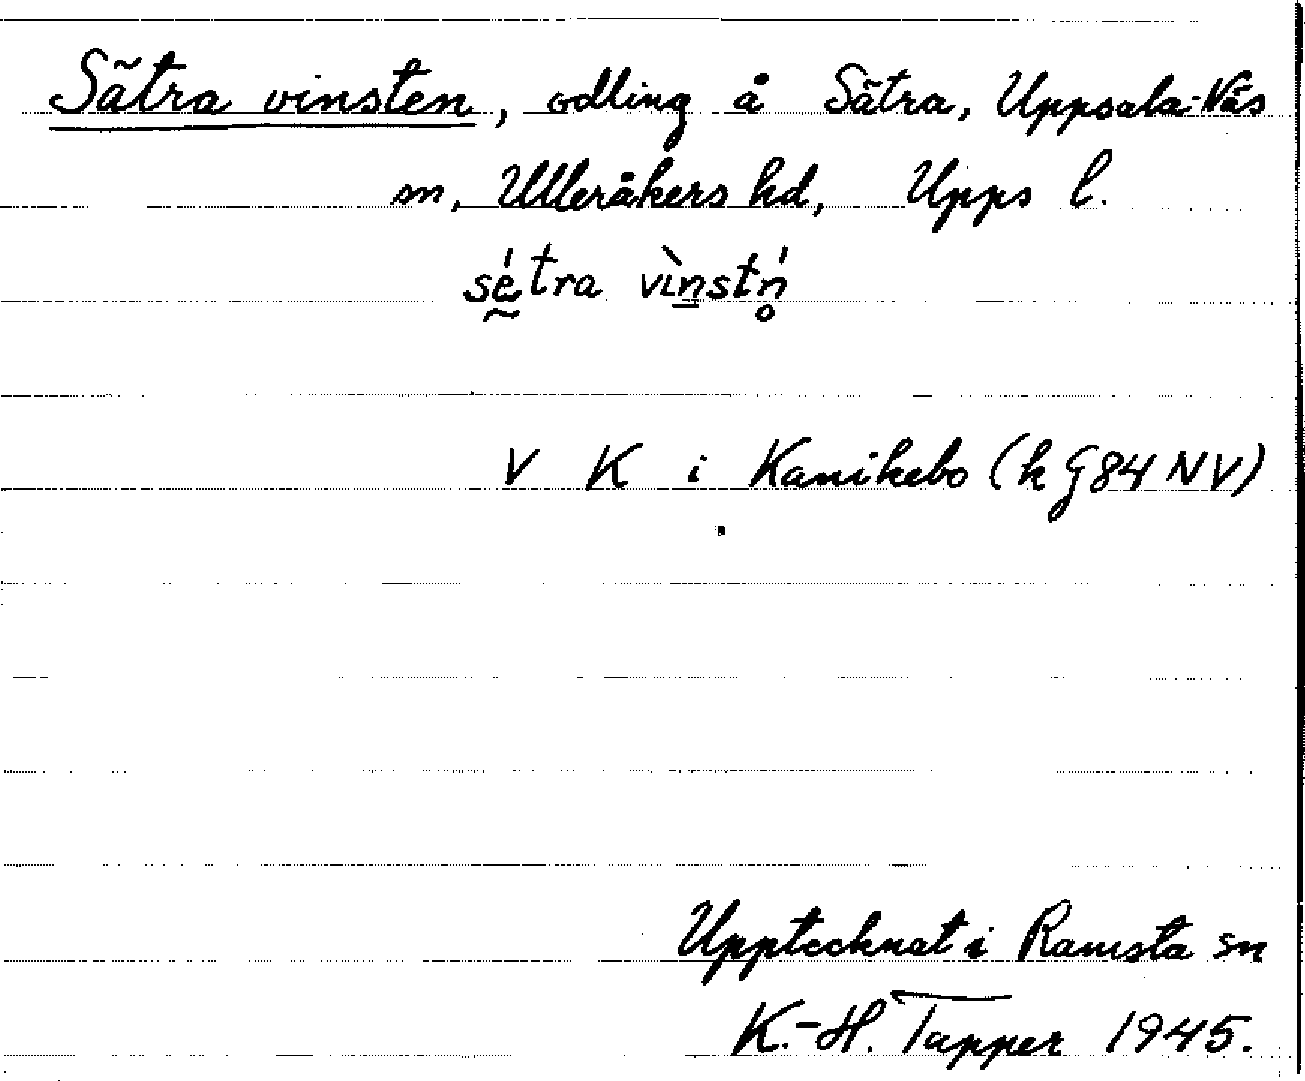 Sätra vinsten, odling å Sätra, Uppsala-Näs
sn, Ulleråkers hd, Upps l.
sḛ́tra vìn̲stń̥
V K i Kanikebo (k G84 NV)
Upptecknat i Ramsta sn
K.-H. Tapper 1945.